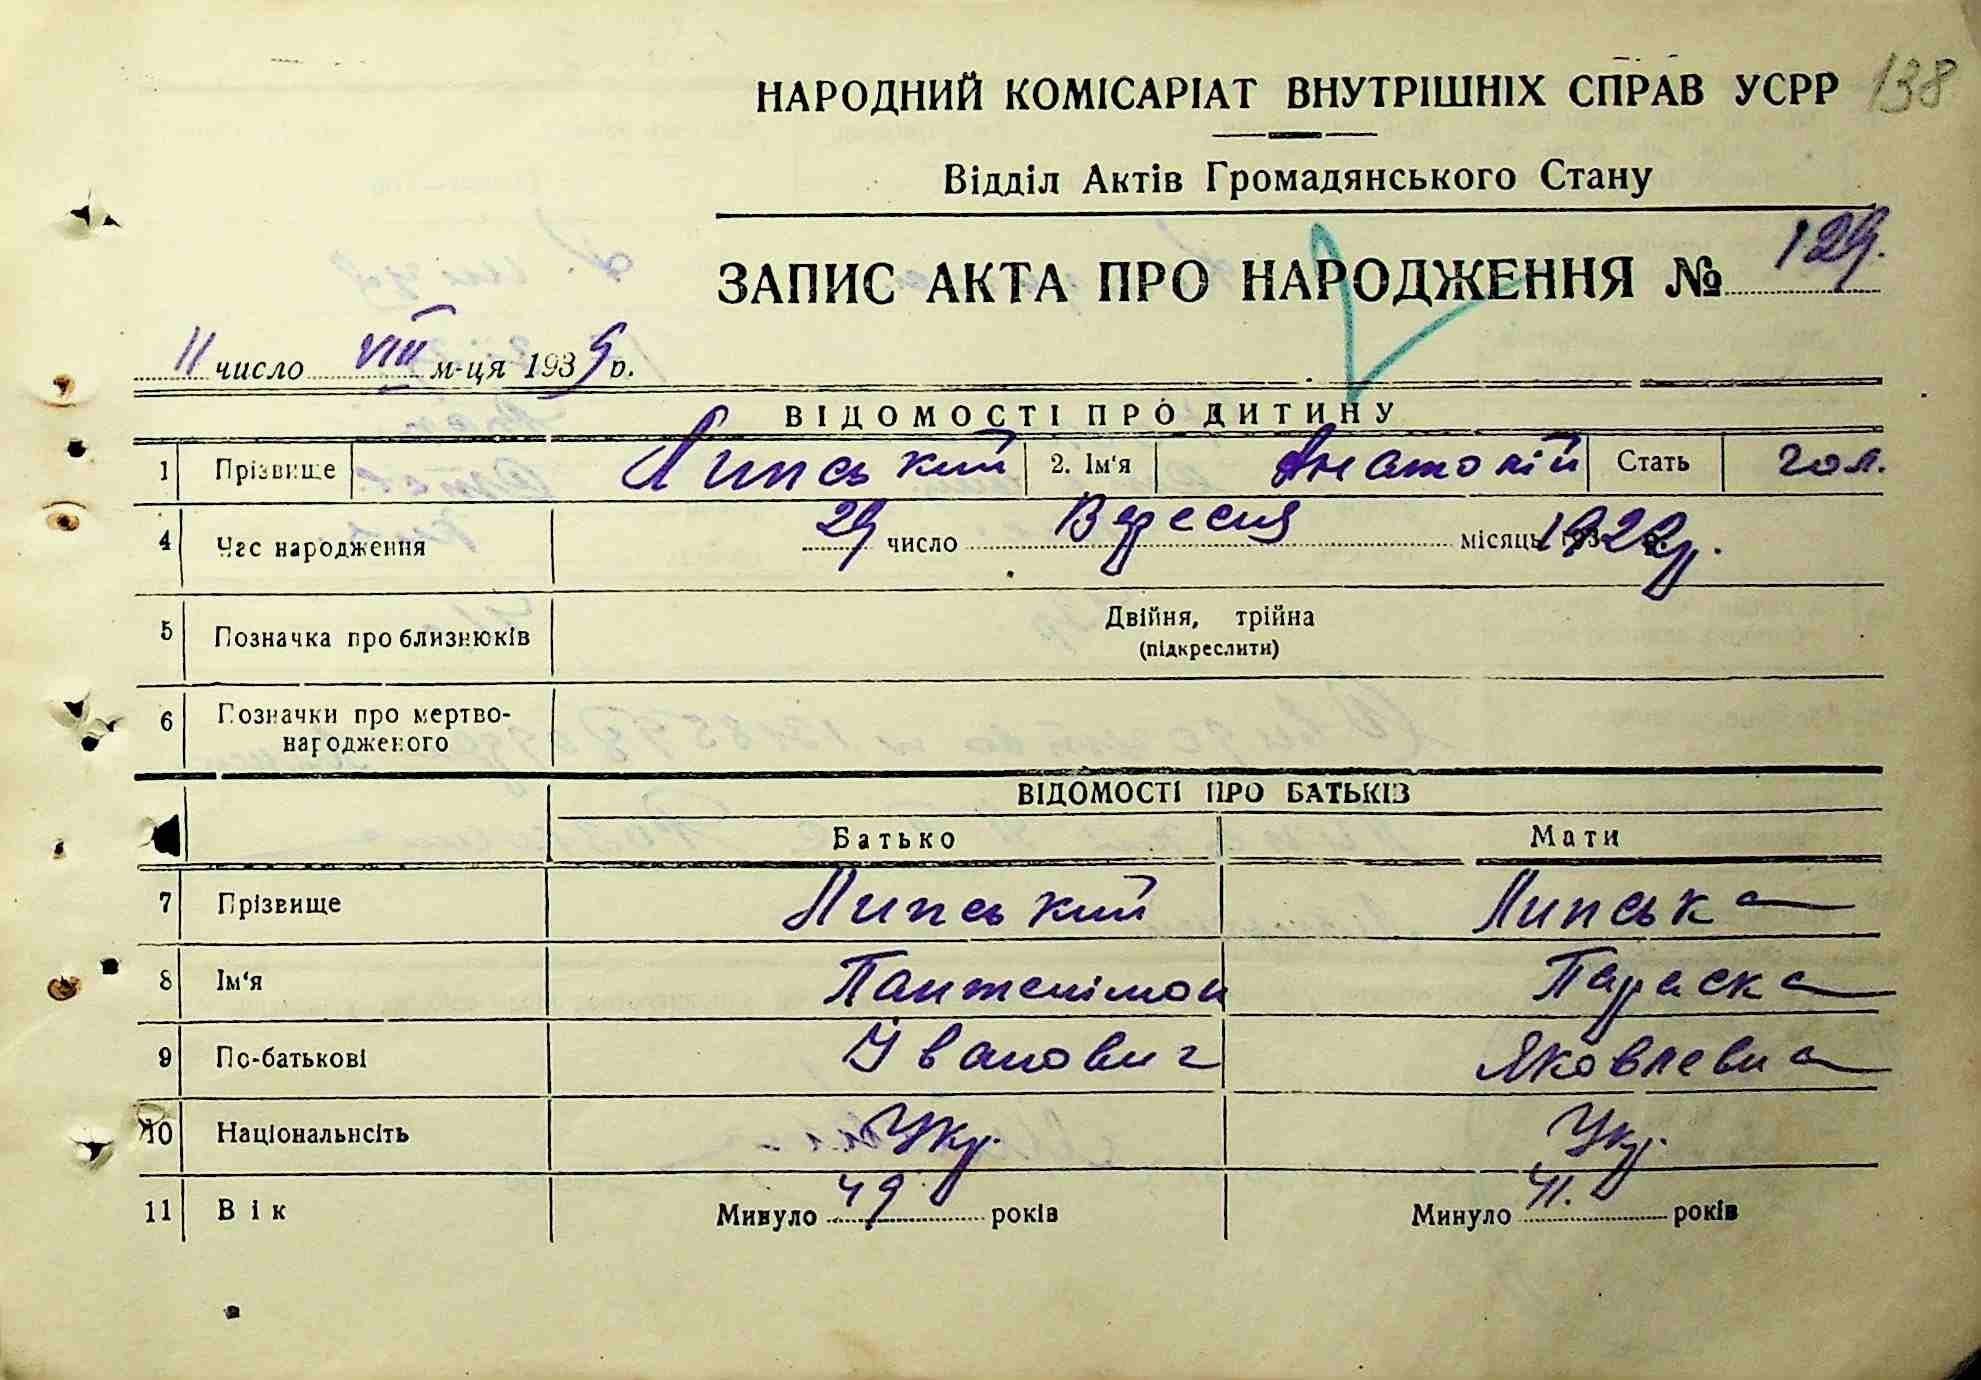 138
НАРОДНИЙ КОМІСАРІАТ ВНУТРІШНІХ СПРАВ УСРР
Відділ Актів Громадянського Стану
ЗАПИС АКТА ПРО НАРОДЖЕННЯ № 129.
11 число VIII м-ця 1939 р.
ВІДОМОСТІ ПРО ДИТИНУ
1 Прізвище Липський 2. Ім'я Анатолій Стать чол.
4 Час народження 29 число Вересня місяць 1922р.
5 Позначка про близнюків Двійня, трійна
(підкреслити)
6 Позначки про мертво-
народженого
ВІДОМОСТІ ПРО БАТЬКІВ
Батько Мати
7 Прізвище Липський Липська
8 Ім'я Пантелімон Параска
9 По-батькові Іванович Яковлевна
10 Національність Укр. Укр.
11 Вік Минуло 49 років Минуло 41. років